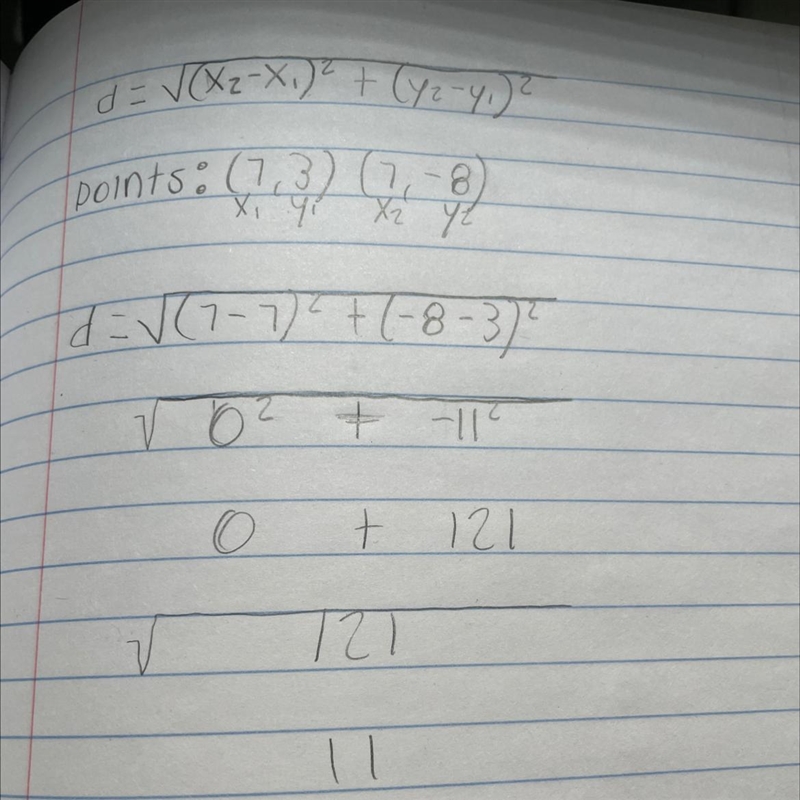 d = √(x₂-x₁)² + (y₂-y₁)²
points: (7, 3) (7, -8)
x₁ y₁ x₂ y₂
d = √(7-7)² + (-8-3)²
√0² + -11²
0 + 121
√121
11